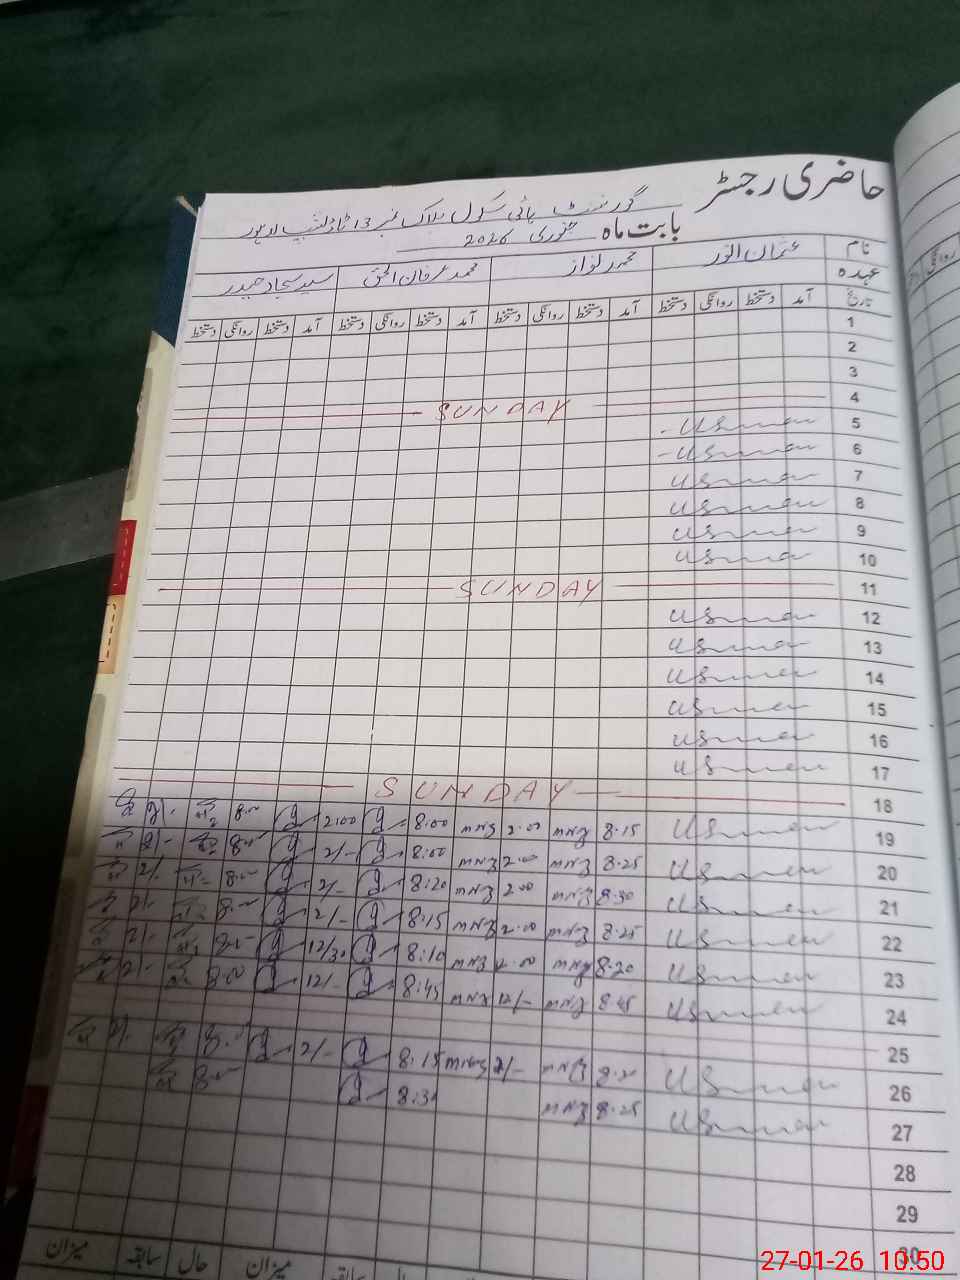 حاضری رجسٹر
گورنمنٹ ہائی سکول بلاک نمبر 13 ٹاؤن شپ لاہور
بابت ماہ جنوری 2026
نام عثمان انور محمد نواز محمد عرفان الحق سید سجاد حیدر
عہدہ
تاریخ آمد دستخط روانگی دستخط آمد دستخط روانگی دستخط آمد دستخط روانگی دستخط آمد دستخط روانگی دستخط
1
2
3
4 SUNDAY
5 Usman
6 Usman
7 Usman
8 Usman
9 Usman
10 Usman
11 SUNDAY
12 Usman
13 Usman
14 Usman
15 Usman
16 Usman
17 Usman
18 SUNDAY
19 Usman 8:15 MNZ 2:00 MNZ 8:00 2:00 8:00 2/-
20 Usman 8:25 MNZ 2:00 MNZ 8:00 2/- 8:00 2/-
21 Usman 8:30 MNZ 2:00 MNZ 8:20 2/- 8:00 2/-
22 Usman 8:25 MNZ 2:00 MNZ 8:15 2/- 8:00 2/-
23 Usman 8:20 MNZ 2:00 MNZ 8:10 12/30 8:00 2/-
24 Usman 8:45 MNZ 12/- MNZ 8:45 12/- 8:00 2/-
25
26 Usman MNZ 2/- MNZ 8:15 2/- 8:00 2/-
27 Usman 8:25 MNZ 8:30 8:00
28
29
30
میزان سابقہ حال میزان سابقہ
27-01-26 10:50